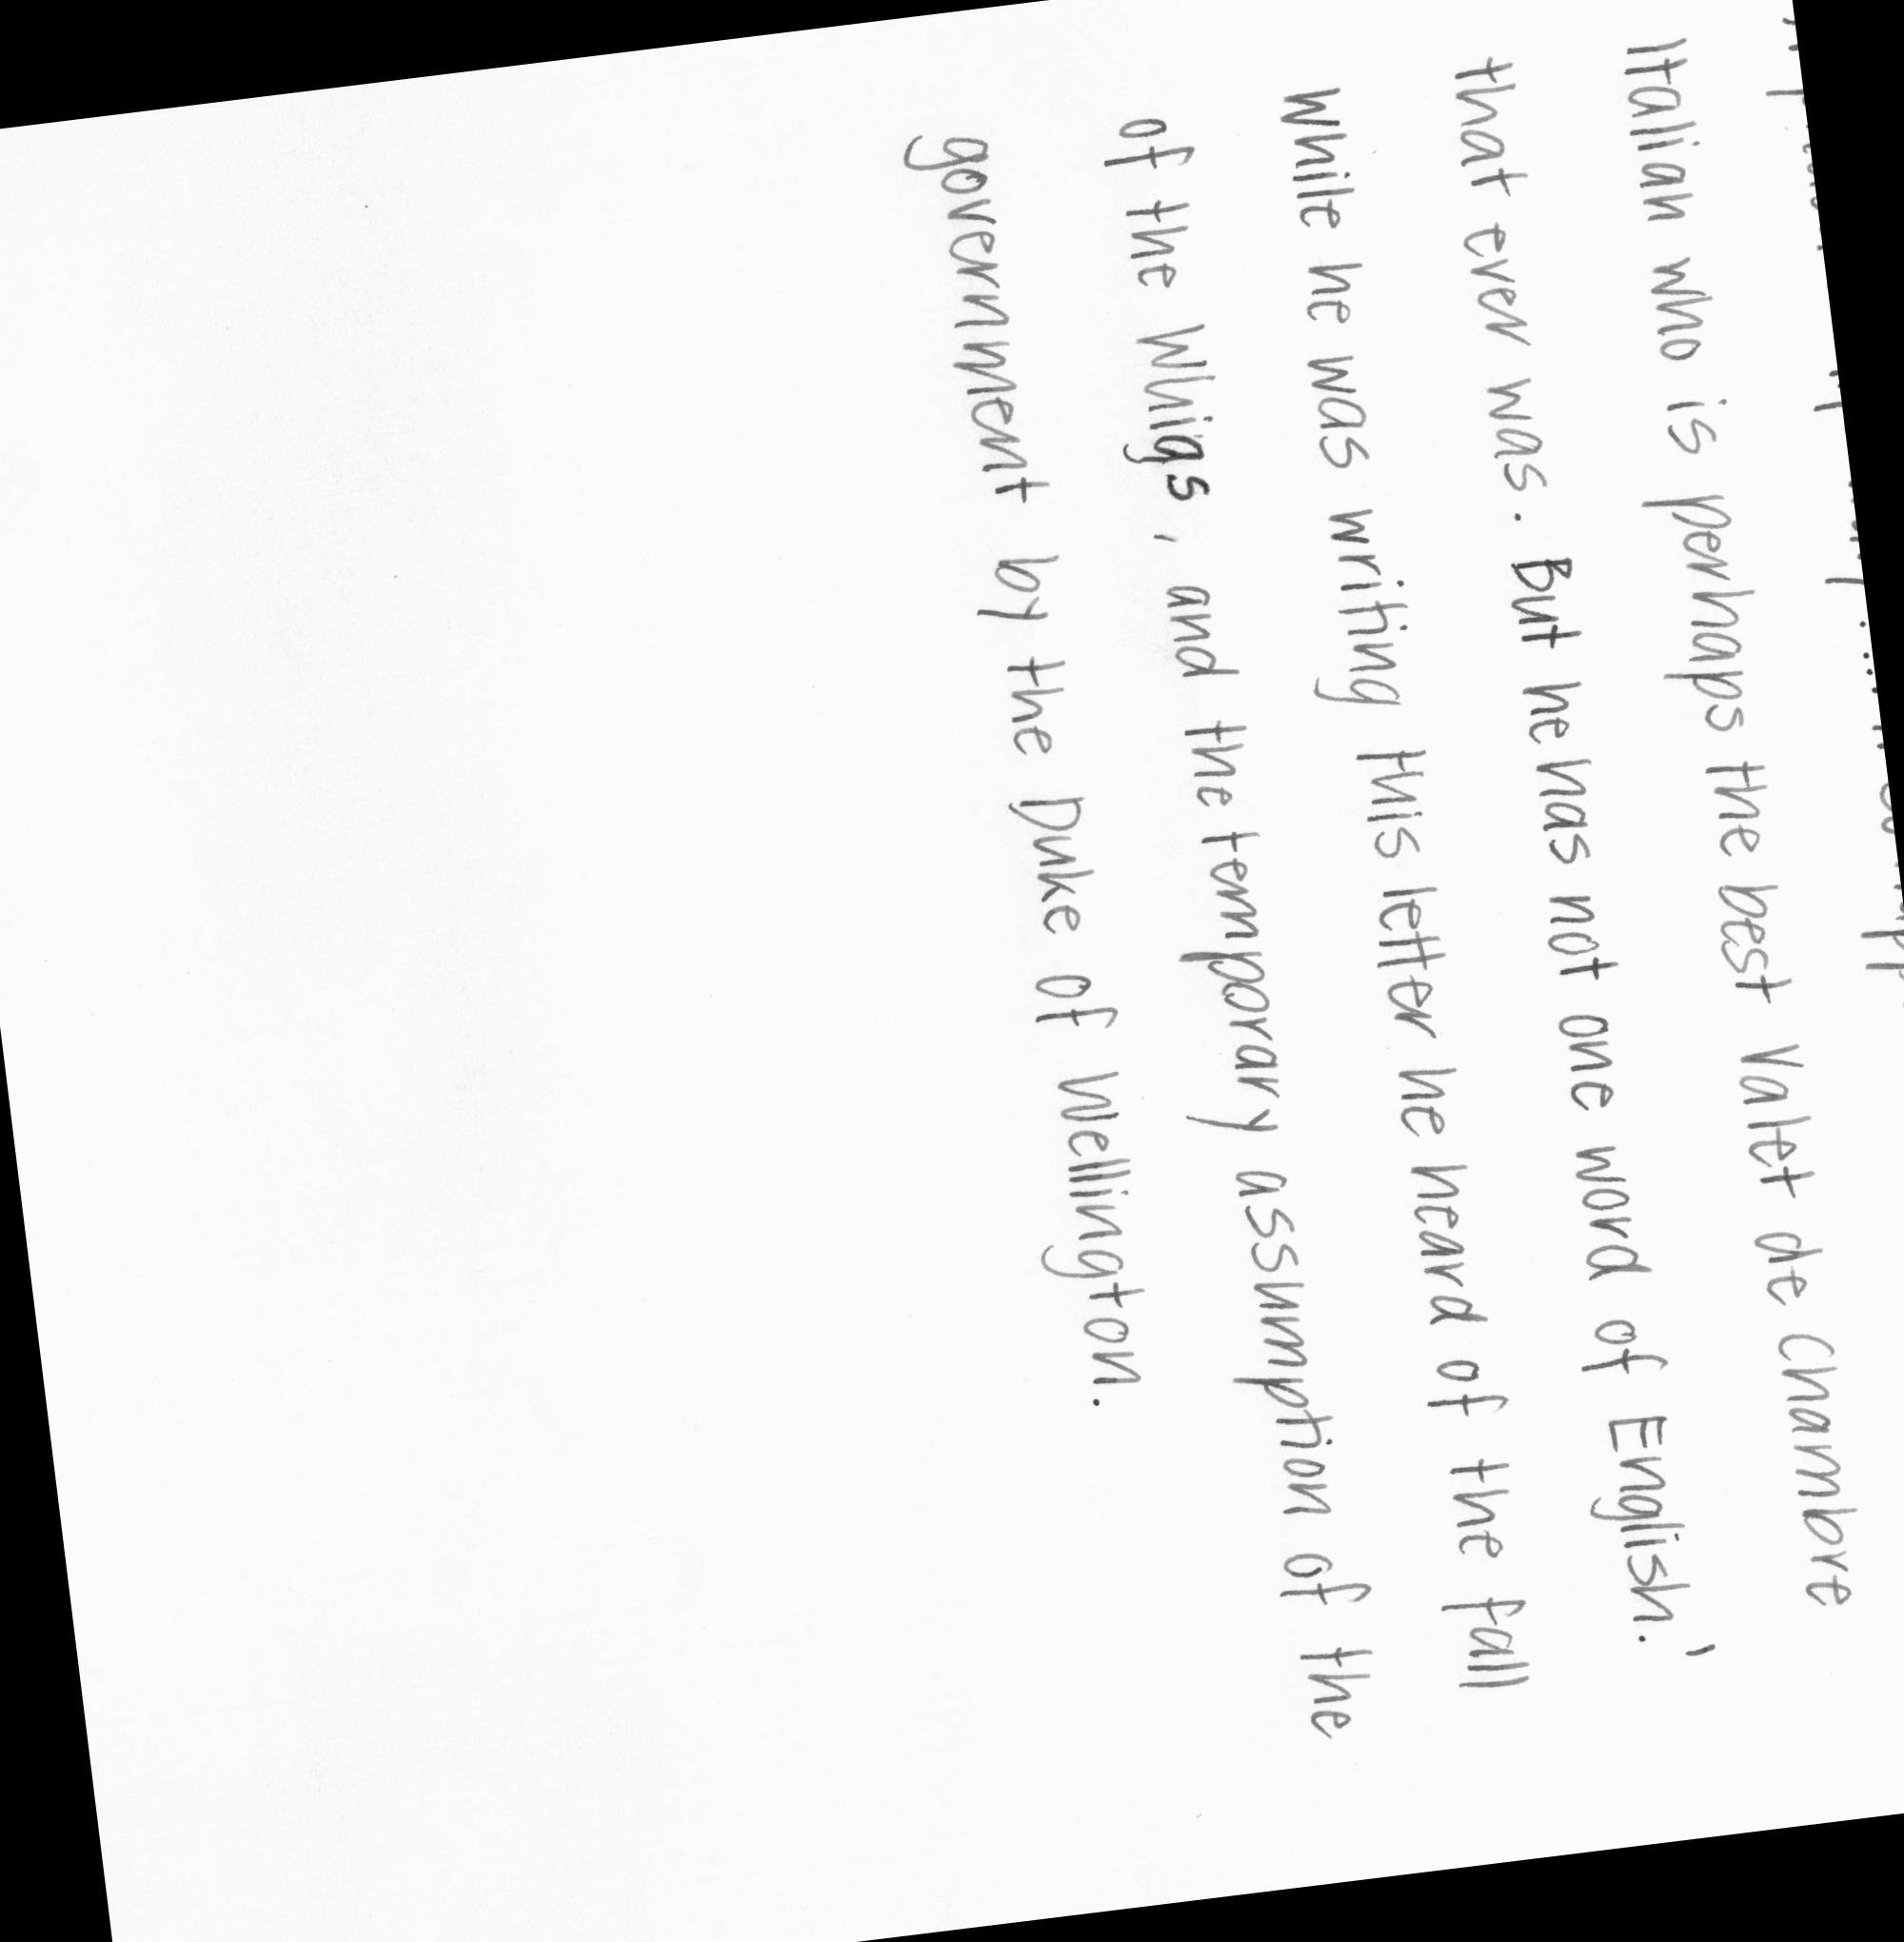 Italian who is perhaps the best Valet de Chambre
that ever was. But he has not one word of English.'
While he was writing this letter he heard of the fall
of the Whigs, and the temporary assumption of the
government by the Duke of Wellington.